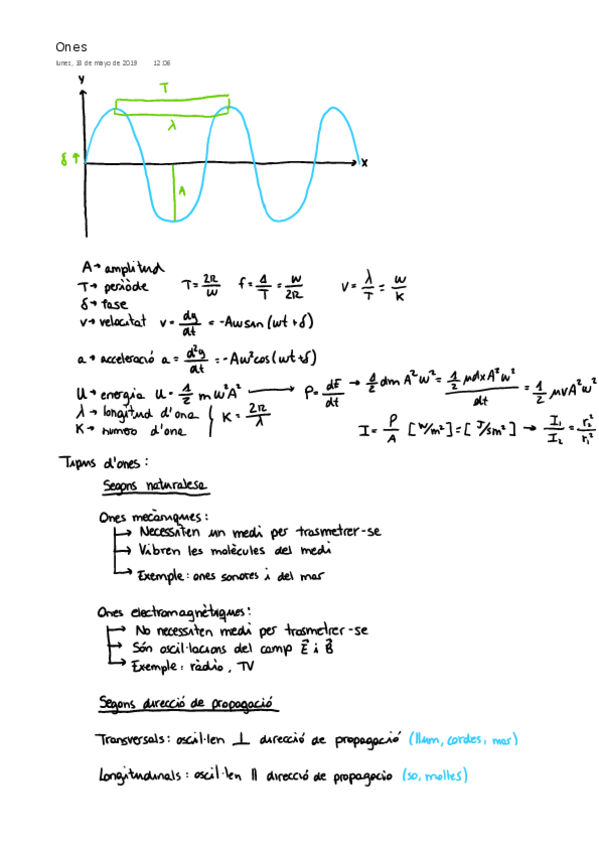 Ones
lunes, 13 de mayo de 2019 12:06
y
T
λ
δ ↑
x
A
A → amplitud
T → període T = 2π/w f = 1/T = w/2π v = λ/T = w/K
δ → fase
v → velocitat v = dy/dt = -Aw sin (wt + δ)
a → acceleració a = d²y/dt = -Aw² cos (wt + δ)
U → energia U = 1/2 m w² A² → P = dE/dt → 1/2 dm A² w² = 1/2 μdx A² w² / dt = 1/2 μv A² w²
λ → longitud d'ona K = 2π/λ
K → numero d'one I = P/A [W/m²] = [J/sm²] → I₁/I₂ = r₂²/r₁²
Tipus d'ones :
Segons naturalesa
Ones mecàniques :
→ Necessiten un medi per trasmetrer-se
→ Vibren les molècules del medi
→ Exemple : ones sonores i del mar
Ones electromagnètiques :
→ No necessiten medi per trasmetrer-se
→ Són oscil·lacions del camp E⃗ i B⃗
→ Exemple : ràdio , TV
Segons direcció de propagació
Transversals : oscil·len ⊥ direcció de propagació (llum, cordes, mar)
Longitudinals : oscil·len || direcció de propagacio (so, molles)